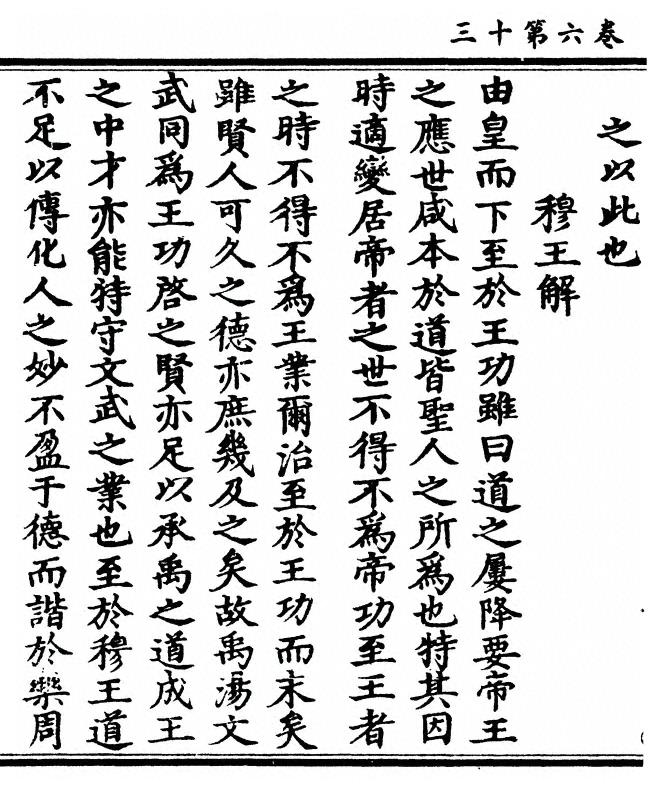 卷六第十三
之以此也
穆王解
由皇而下至於王功雖曰道之屢降要帝王
之應世咸本於道皆聖人之所爲也特其因
時適變居帝者之世不得不爲帝功至王者
之時不得不爲王業爾治至於王功而末矣
雖賢人可久之德亦庶幾及之矣故禹湯文
武同爲王功啓之賢亦足以承禹之道成王
之中才亦能持守文武之業也至於穆王道
不足以傳化人之妙不盈于德而諧於樂周